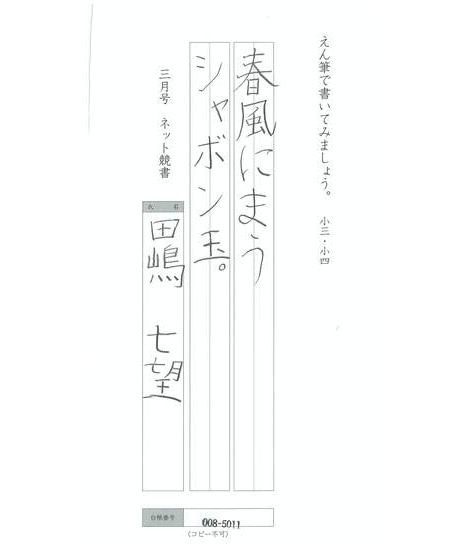 えん筆で書いてみましょう。 小三・小四
春風にまう
シャボン玉。
三月号 ネット競書
氏 名
田嶋 七望
台帳番号 008-5011
(コピー不可)